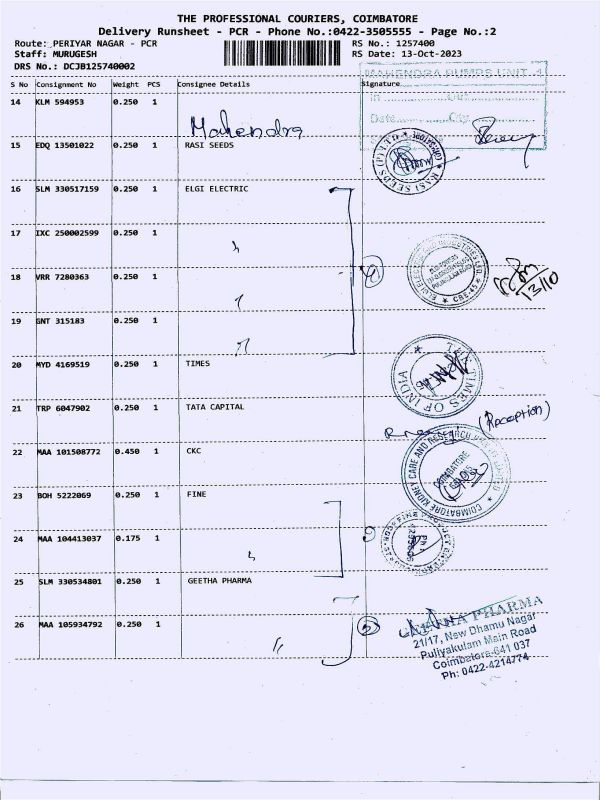 THE PROFESSIONAL COURIERS, COIMBATORE
Delivery Runsheet - PCR - Phone No.:0422-3505555 - Page No.:2
Route: PERIYAR NAGAR - PCR RS No.: 1257400
Staff: MURUGESH RS Date: 13-Oct-2023
DRS No.: DCJB125740002
S No Consignment No Weight PCS Consignee Details Signature
MAHENDRA PUMPS UNIT
14 KLM 594953 0.250 1 Mahendra
Date City
15 EDQ 13501022 0.250 1 RASI SEEDS
RASI SEEDS (P) LTD
16 SLM 330517159 0.250 1 ELGI ELECTRIC
17 IXC 250002599 0.250 1
CBE-45
13/10
18 VRR 7280363 0.250 1
19 GNT 315183 0.250 1
20 MYD 4169519 0.250 1 TIMES
TIMES OF INDIA
21 TRP 6047902 0.250 1 TATA CAPITAL
(Reception)
22 MAA 101508772 0.450 1 CKC
COIMBATORE KIDNEY CARE AND RESEARCH
COIMBATORE
23 BOH 5222069 0.250 1 FINE
24 MAA 104413037 0.175 1
25 SLM 330534801 0.250 1 GEETHA PHARMA
26 MAA 105934792 0.250 1
PHARMA
21/17, New Dhamu Nagar
Puliyakulam Main Road
Coimbatore-641 037
Ph: 0422-4214774